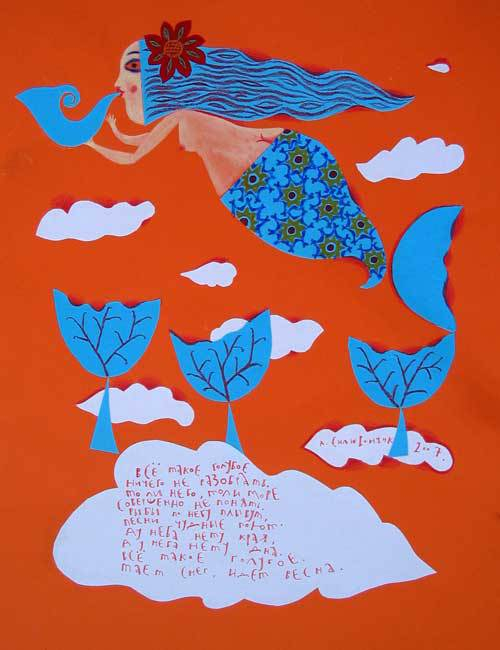 Л. Силивончик 2007.
ВСЁ ТАКОЕ ГОЛУБОЕ
НИЧЕГО НЕ РАЗОБРАТЬ,
ТО ЛИ НЕБО, ТО ЛИ МОРЕ
СОВЕРШЕННО НЕ ПОНЯТЬ.
РЫБЫ ПО НЕБУ ПЛЫВУТ,
ПЕСНИ ЧУДНЫЕ ПОЮТ.
А У НЕБА НЕТУ КРАЯ,
А У НЕБА НЕТУ ДНА.
ВСЁ ТАКОЕ ГОЛУБОЕ.
ТАЕТ СНЕГ, ИДЁТ ВЕСНА.